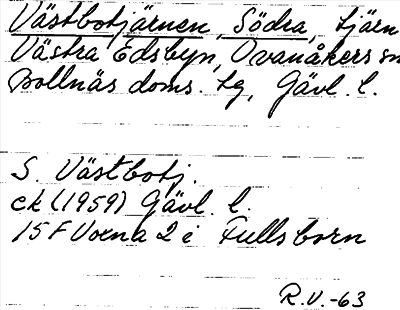 Västbotjärnen, Södra, tjärn
Västra Edsbyn, Ovanåkers sn
Bollnäs doms. tg, Gävl. l.
S. Västbotj.
ek (1959) Gävl. l.
15F Voxna 2 i Fullsborn
R.V.-63